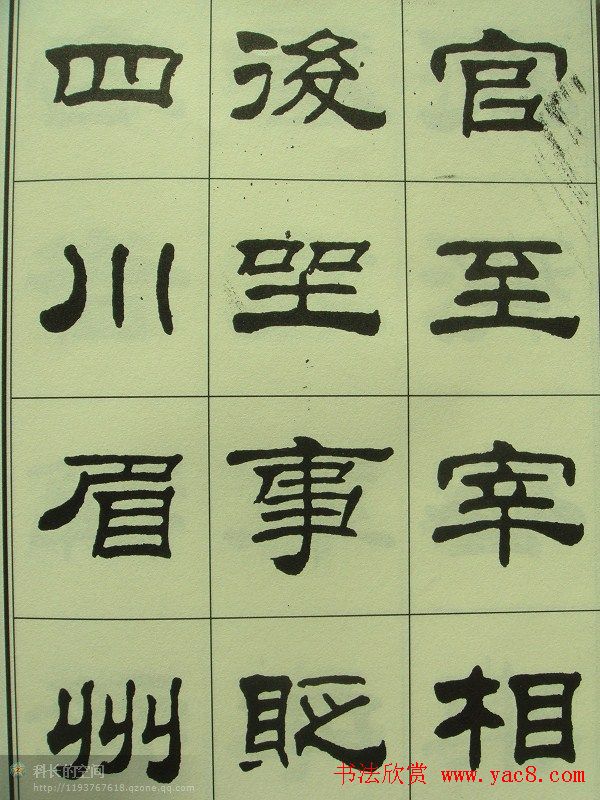 官至宰相
後坐事貶
四川眉州
科长的空间
http://1193767618.qzone.qq.com
书法欣赏 www.yac8.com